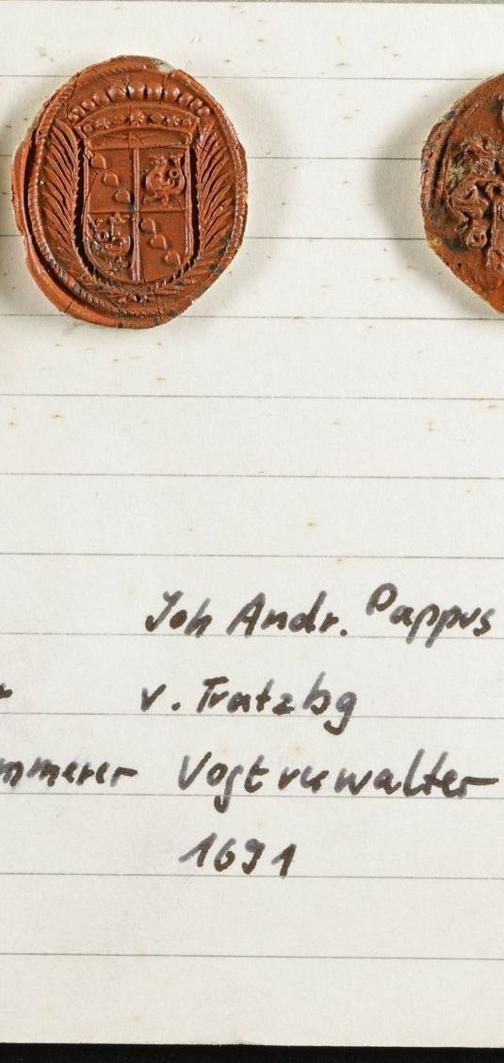 Joh Andr. Pappus
r v. Tratzbg
mmerer Vogtverwalter
1691